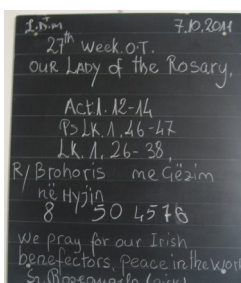 7.10.2011
27th Week.O.T.
OUR LADY of the Rosary,
Act1. 12-14
Ps LK. 1, 46-47
LK. 1, 26-38,
R/ Brohoris me Gëzim
në Hyjin
8 50 4576
We pray for our Irish
benefectors, peace in the wor